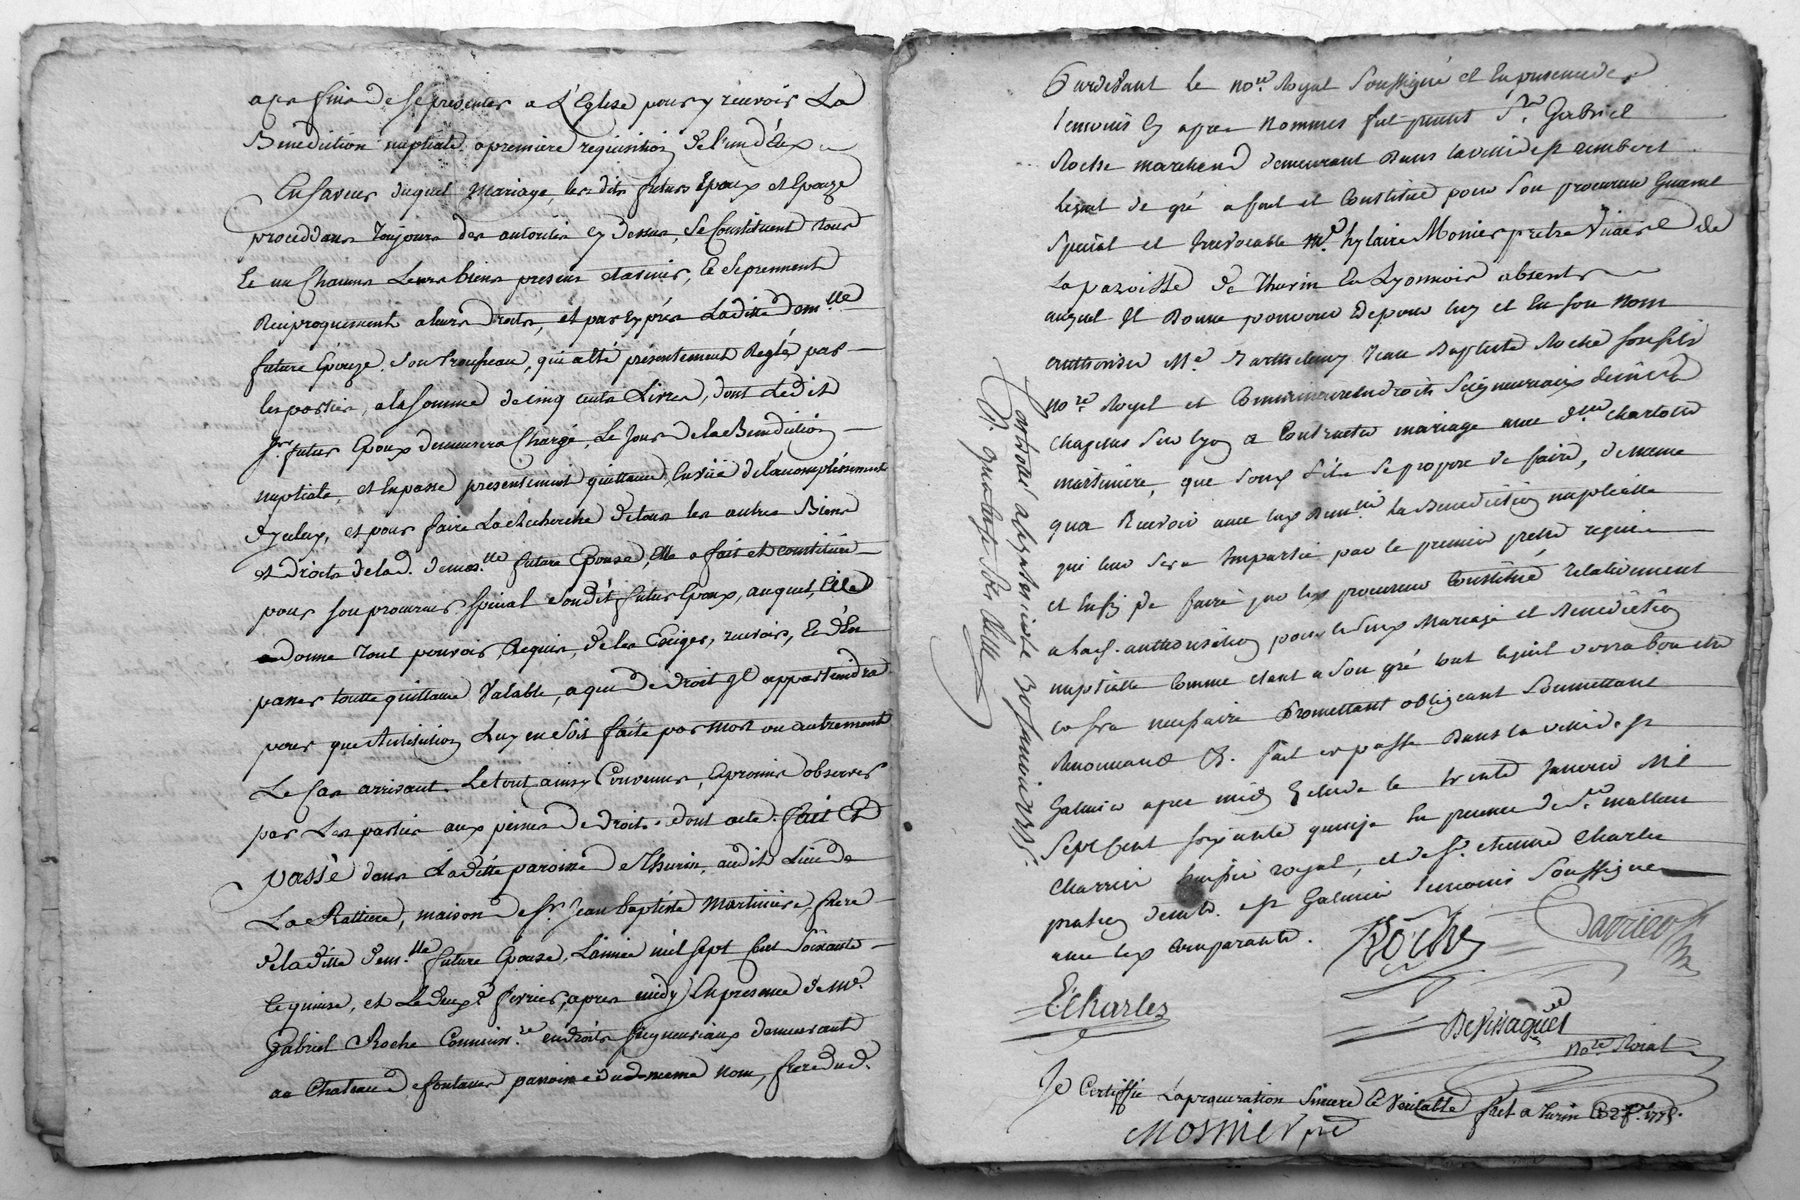 aux fins de se presenter a L'Eglise pour y recevoir La
Benediction nuptiale a premiere requisition de l'un d'eux
En faveur duquel Mariage, les dits futurs Epoux et Epouze
procedans toujours des autorités cy dessus, se Constituent tous
Et un Chacuns Leurs biens presens et avenir, Et se prennent
Reciproquement a leurs Droits, et par Exprès Laditte dem.lle
future Epouze son Trousseau, qui a été présentement Reglé par
les parties, a la somme de cinq cents Livres, dont Ledit
Sr. futur Epoux demeurera Chargé, Le Jour de la Benediction
nuptiale, et En passe presentement quittance, En vüe de l'accomplissement
d'jceluy, et pour faire La Recherche de tous les autres Biens
et droits de lad. demos.lle future Epouse, Elle a fait et constitué
pour son procureur special Son dit futur Epoux, auquel Elle
donne tout pouvoir Requis, de les Exiger, recevoir, Et d'En
passer toutte quittance Valable, a qui de Droit jl appartiendra
pour que Restitution Luy en Soit faite par mort ou autrement
Le Cas arrivant. Le tout ainsy Convenus, Et promis observer
par Les parties aux peines de Droit. dont acte. fait Et
passé dans Laditte paroisse de Thurin, audit Lieu de
La Rattiere, maison de Sr. Jean baptiste Martiniere, frere
de laditte dem.lle future Epouse, L'année mil sept Cent Soixante
Et quinse, et Le deux fevrier, apres midy En presence de Mr.
Gabriel Roche Commiss.re en droits seigneuriaux demeurant
au Chateau de fontanes paroisse dud. meme nom, frere dud.
Pardevant le no.re Royal Soussigné et En presence des
temoins cy apres nommés fut present Sr. Gabriel
Roche marchand demeurant Dans la ville de St rambert
lequel de gré a fait et Constitué pour Son procureur General
Special et Irrevocable Mre. hylaire Monier pretre Vicaire de
La paroisse de Thurin En Lyonnois absent
auquel Il Donne pouvoir De pour luy et En son nom
authoriser Me. Barthelemy Jean Baptiste Roche son fils
no.re Royal et Commissaire en droits Seigneuriaux
a Contracter mariage avec d.lle Charlotte
martiniere, que Sond. fils Se propose de faire, de meme
qua Recevoir avec lad. Dem.lle La Benediction nuptialle
qui leur Sera Impartie par le premier pretre requis
et Enfin De faire par led. procureur Constitué relativement
a lad. authorisation pour led. Mariage et Benediction
nuptialle Comme etant a Son gré tout ce quil verra bon etre
necessaire Promettant obligeant Soumettant
Renonceant &. fait et passé Dans la ville de St
Galmier apres midy le trente Janvier Mil
Sept Cent soixante quinze En presence de Sr. mathieu
Charrier huissier royal, et de Sr. etienne Charles
praticien St Galmier temoins Soussignés
avec led. Comparant.
Roche
Charrier
E. Charles
no.re Roial
Je Certiffie La procuration Sincere Et Veritable fait a Turin Ce 2 fr. 1775.
Mosnier ptre